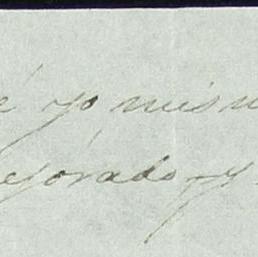 é yo mism
ejorado y